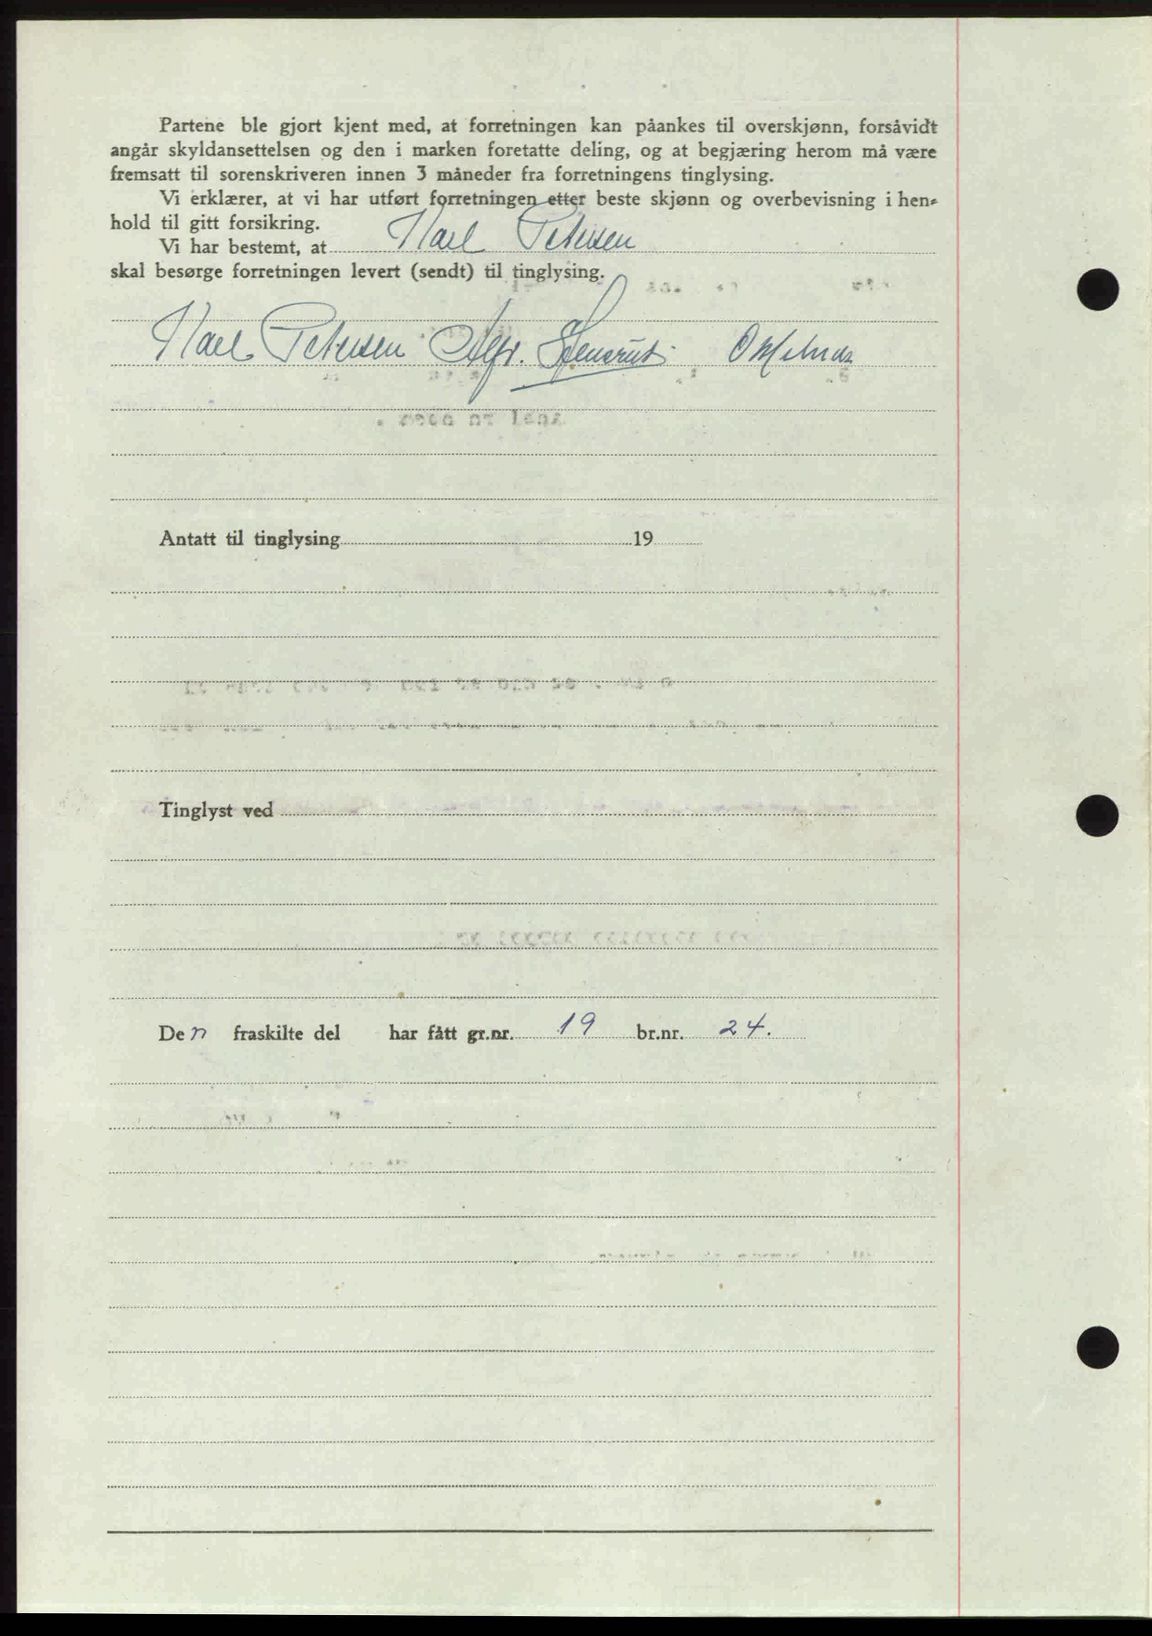 Partene ble gjort kjent med, at forretningen kan påankes til overskjønn, forsåvidt
angår skyldansettelsen og den i marken foretatte deling, og at begjæring herom må være
fremsatt til sorenskriveren innen 3 måneder fra forretningens tinglysing.
Vi erklærer, at vi har utført forretningen etter beste skjønn og overbevisning i hen-
hold til gitt forsikring.
Vi har bestemt, at Karl Petersen
skal besørge forretningen levert (sendt) til tinglysing.
Karl Petersen Alfr.
Antatt til tinglysing 19
Tinglyst ved
Den fraskilte del har fått gr.nr. 19 br.nr. 24.